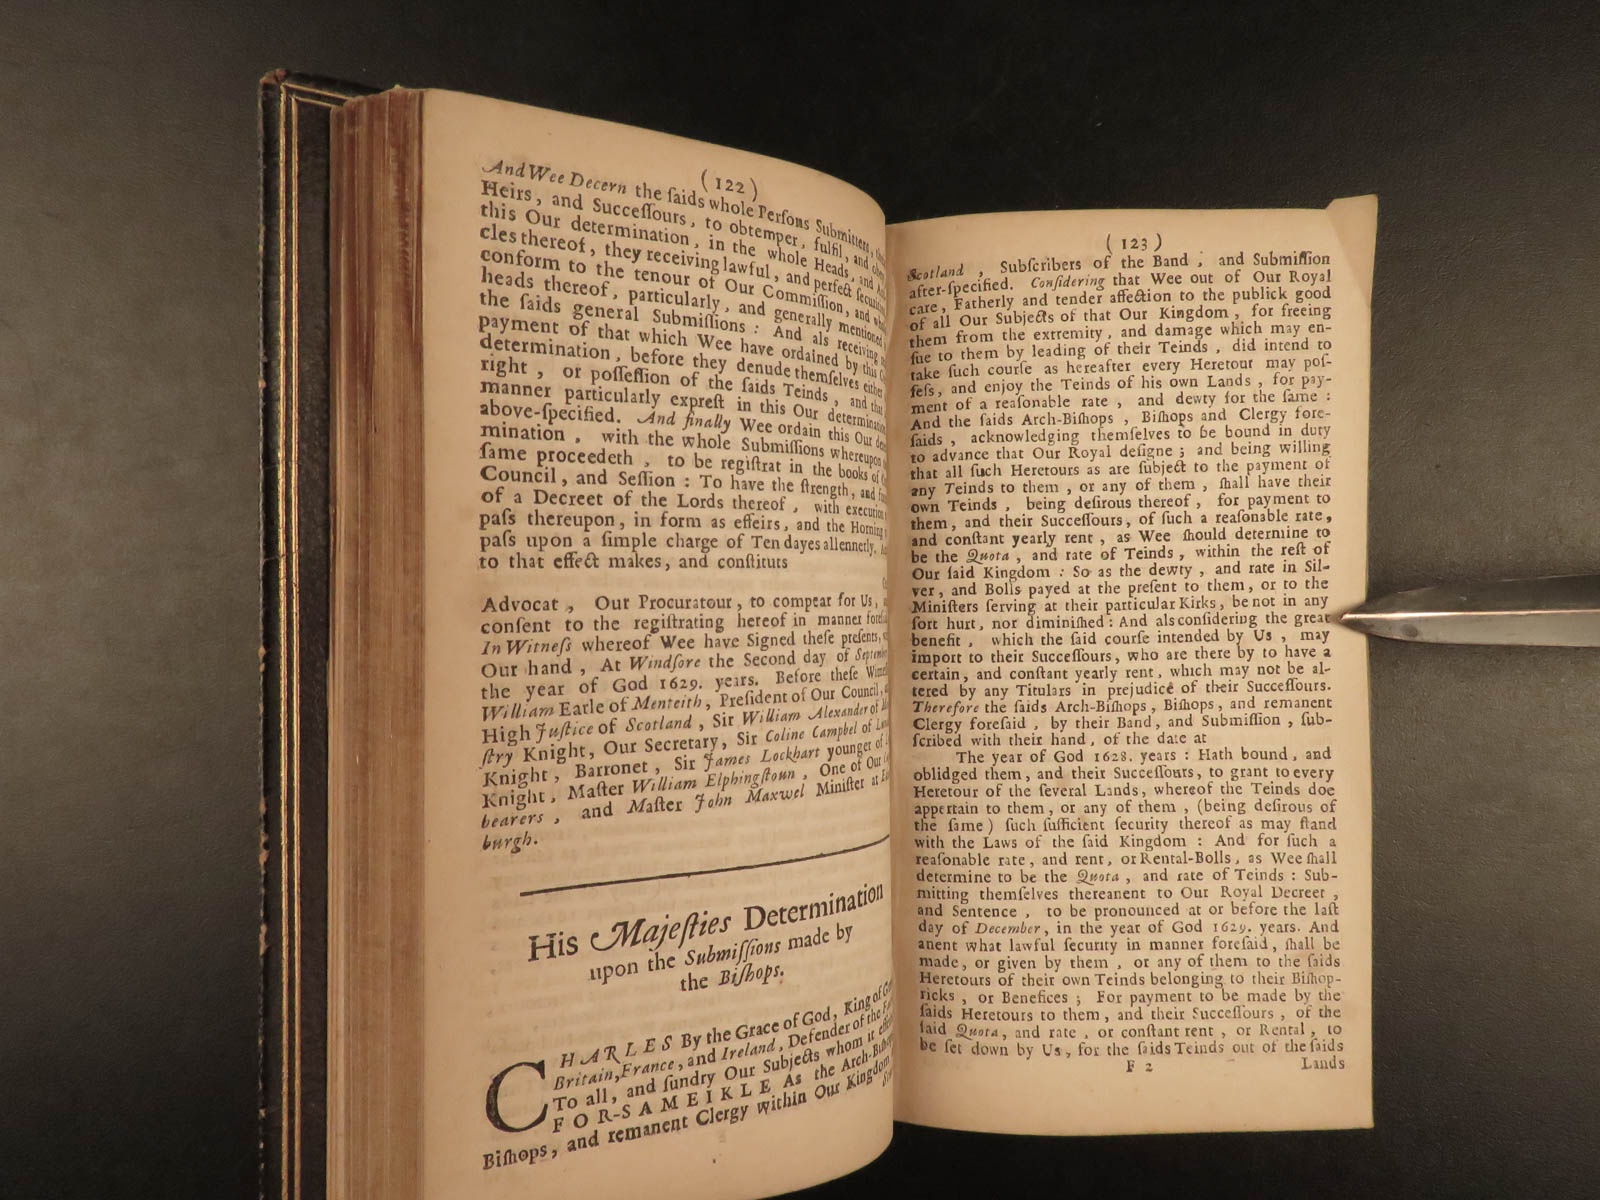 (122)
And Wee Decern the ſaids whole Perſons Submitters,
Heirs, and Succeſſours, to obtemper, fulfil, and
this Our determination, in the whole Heads, and
cles thereof, they receiving lawful, and perfect
conform to the tenour of Our Commiſſion, and
heads thereof, particularly, and generally mentioned
the ſaids general Submiſſions: And als receiving
payment of that which Wee have ordained by this
determination, before they denude themſelves either
right, or poſſeſſion of the ſaids Teinds, and that
manner particularly expreſt in this Our determination
above-ſpecified. And finally Wee ordain this Our
mination, with the whole Submiſſions whereupon
ſame proceedeth, to be regiſtrat in the books of
Council, and Seſſion: To have the ſtrength, and
of a Decreet of the Lords thereof, with execution
paſs thereupon, in form as effeirs, and the Horning
paſs upon a ſimple charge of Ten dayes allennerly.
to that effect makes, and conſtituts
Advocat, Our Procuratour, to compear for Us,
conſent to the regiſtrating hereof in manner
In Witneſs whereof Wee have Signed theſe preſents,
Our hand, At Windſore the Second day of September
the year of God 1629. years. Before theſe
William Earle of Menteith, Preſident of Our Council,
High Juſtice of Scotland, Sir William Alexander of
ſtry Knight, Our Secretary, Sir Coline Campbel of
Knight, Barronet, Sir James Lockhart younger of
Knight, Maſter William Elphingſtoun, One of Our
bearers, and Maſter John Maxwel Miniſter at
burgh.
His Majeſties Determination
upon the Submiſſions made by
the Biſhops.
CHARLES By the Grace of God, King of
Britain, France, and Ireland, Defender of the
To all, and ſundry Our Subjects whom it
FOR-SAMEIKLE As the Arch-
Biſhops, and remanent Clergy within Our Kingdom
(123)
Scotland, Subſcribers of the Band, and Submiſſion
after-ſpecified. Conſidering that Wee out of Our Royal
care, Fatherly and tender affection to the publick good
of all Our Subjects of that Our Kingdom, for freeing
them from the extremity, and damage which may en-
ſue to them by leading of their Teinds, did intend to
take ſuch courſe as hereafter every Heretour may poſ-
ſeſs, and enjoy the Teinds of his own Lands, for pay-
ment of a reaſonable rate, and dewty for the ſame:
And the ſaids Arch-Biſhops, Biſhops and Clergy fore-
ſaids, acknowledging themſelves to be bound in duty
to advance that Our Royal deſigne; and being willing
that all ſuch Heretours as are ſubject to the payment of
any Teinds to them, or any of them, ſhall have their
own Teinds, being deſirous thereof, for payment to
them, and their Succeſſours, of ſuch a reaſonable rate,
and conſtant yearly rent, as Wee ſhould determine to
be the Quota, and rate of Teinds, within the reſt of
Our ſaid Kingdom: So as the dewty, and rate in Sil-
ver, and Bolls payed at the preſent to them, or to the
Miniſters ſerving at their particular Kirks, be not in any
ſort hurt, nor diminiſhed: And als conſidering the great
benefit, which the ſaid courſe intended by Us, may
import to their Succeſſours, who are there by to have a
certain, and conſtant yearly rent, which may not be al-
tered by any Titulars in prejudice of their Succeſſours.
Therefore the ſaids Arch-Biſhops, Biſhops, and remanent
Clergy foreſaid, by their Band, and Submiſſion, ſub-
ſcribed with their hand, of the date at
The year of God 1628. years: Hath bound, and
oblidged them, and their Succeſſours, to grant to every
Heretour of the ſeveral Lands, whereof the Teinds doe
appertain to them, or any of them, (being deſirous of
the ſame) ſuch ſufficient ſecurity thereof as may ſtand
with the Laws of the ſaid Kingdom: And for ſuch a
reaſonable rate, and rent, or Rental-Bolls, as Wee ſhall
determine to be the Quota, and rate of Teinds: Sub-
mitting themſelves thereanent to Our Royal Decreet,
and Sentence, to be pronounced at or before the laſt
day of December, in the year of God 1629. years. And
anent what lawful ſecurity in manner foreſaid, ſhall be
made, or given by them, or any of them to the ſaids
Heretours of their own Teinds belonging to their Biſhop-
ricks, or Benefices; For payment to be made by the
ſaids Heretours to them, and their Succeſſours, of the
ſaid Quota, and rate, or conſtant rent, or Rental, to
be ſet down by Us, for the ſaids Teinds out of the ſaids
F 2 Lands